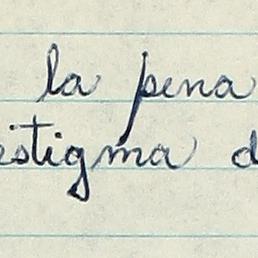 la pena
estigma d